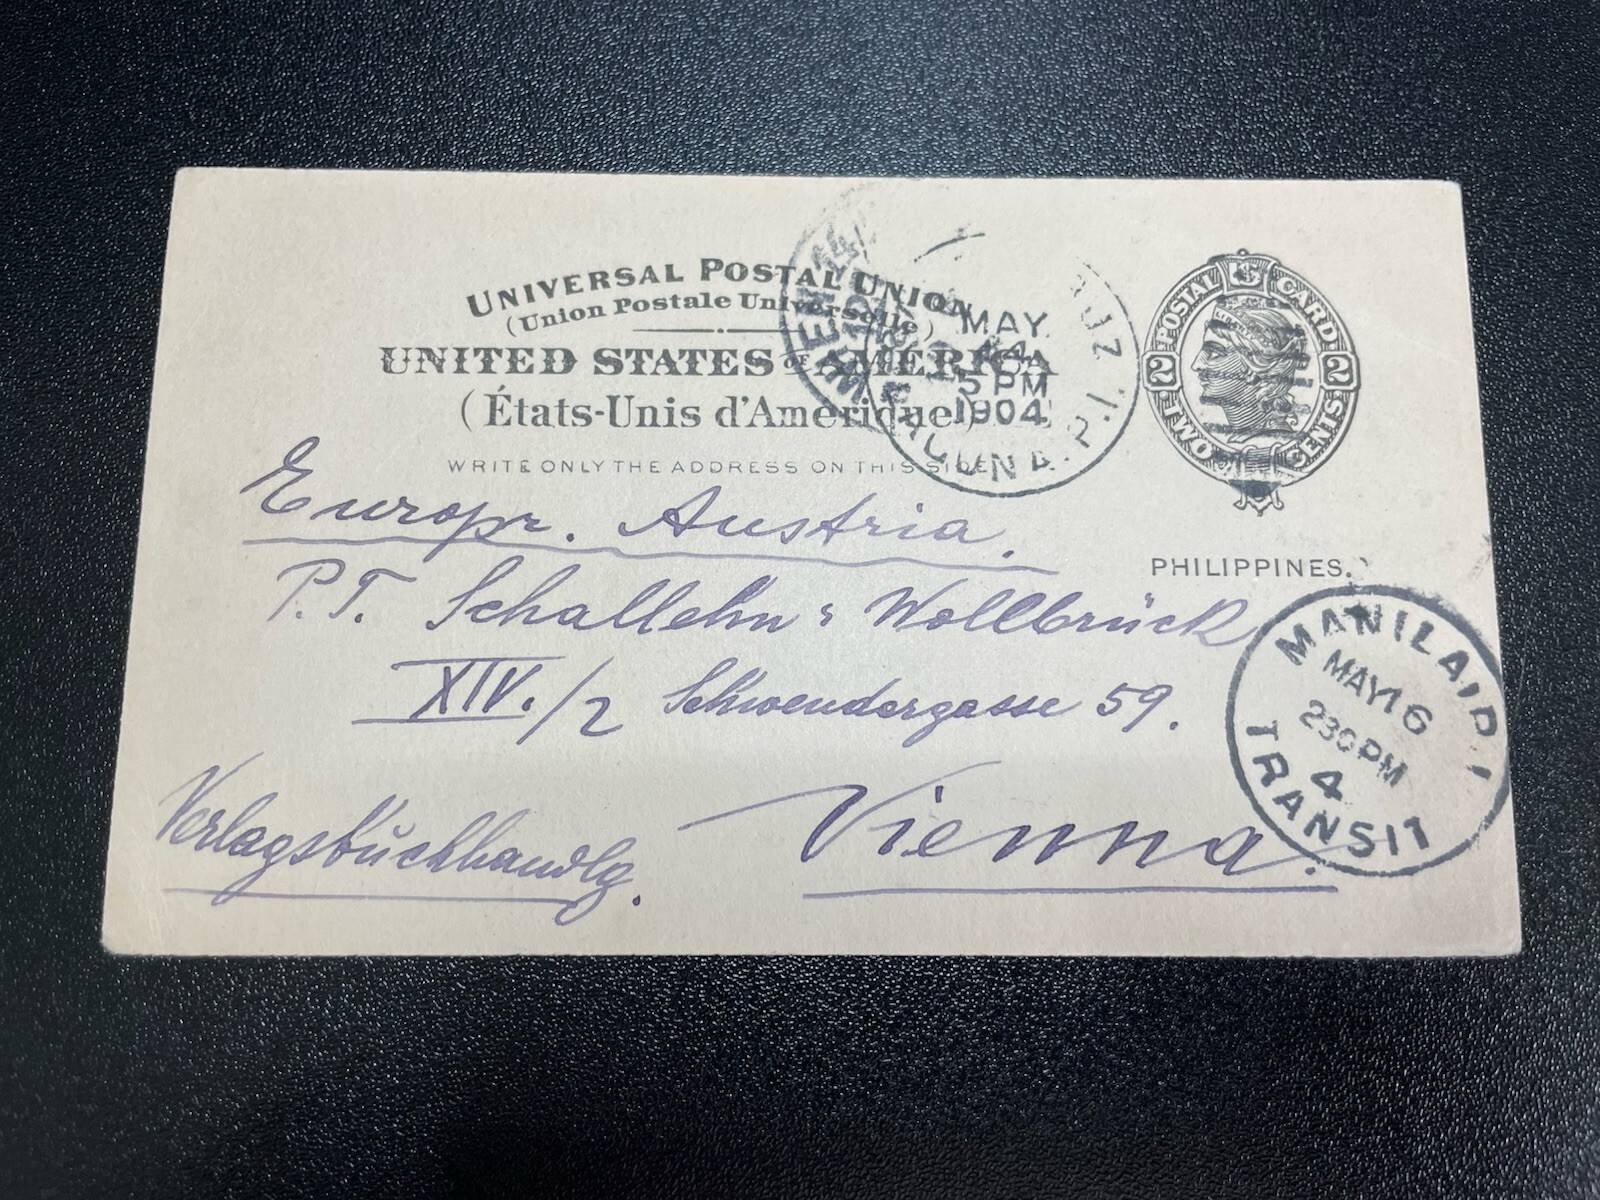 UNIVERSAL POSTAL UNION
(Union Postale Universelle)
UNITED STATES OF AMERICA
(États-Unis d'Amérique)
WRITE ONLY THE ADDRESS ON THIS SIDE
WIEN 14/
MAY
14
5 PM
1904
LAGUNA. P.I.
POSTAL CARD
2 2
TWO CENTS
PHILIPPINES.
Europe. Austria.
P.T. Schallehn & Wollbrück
XIV./2 Schwendergasse 59.
Verlagsbuchhandlg.
Vienna.
MANILA P.I.
MAY 16
230 PM
4
TRANSIT